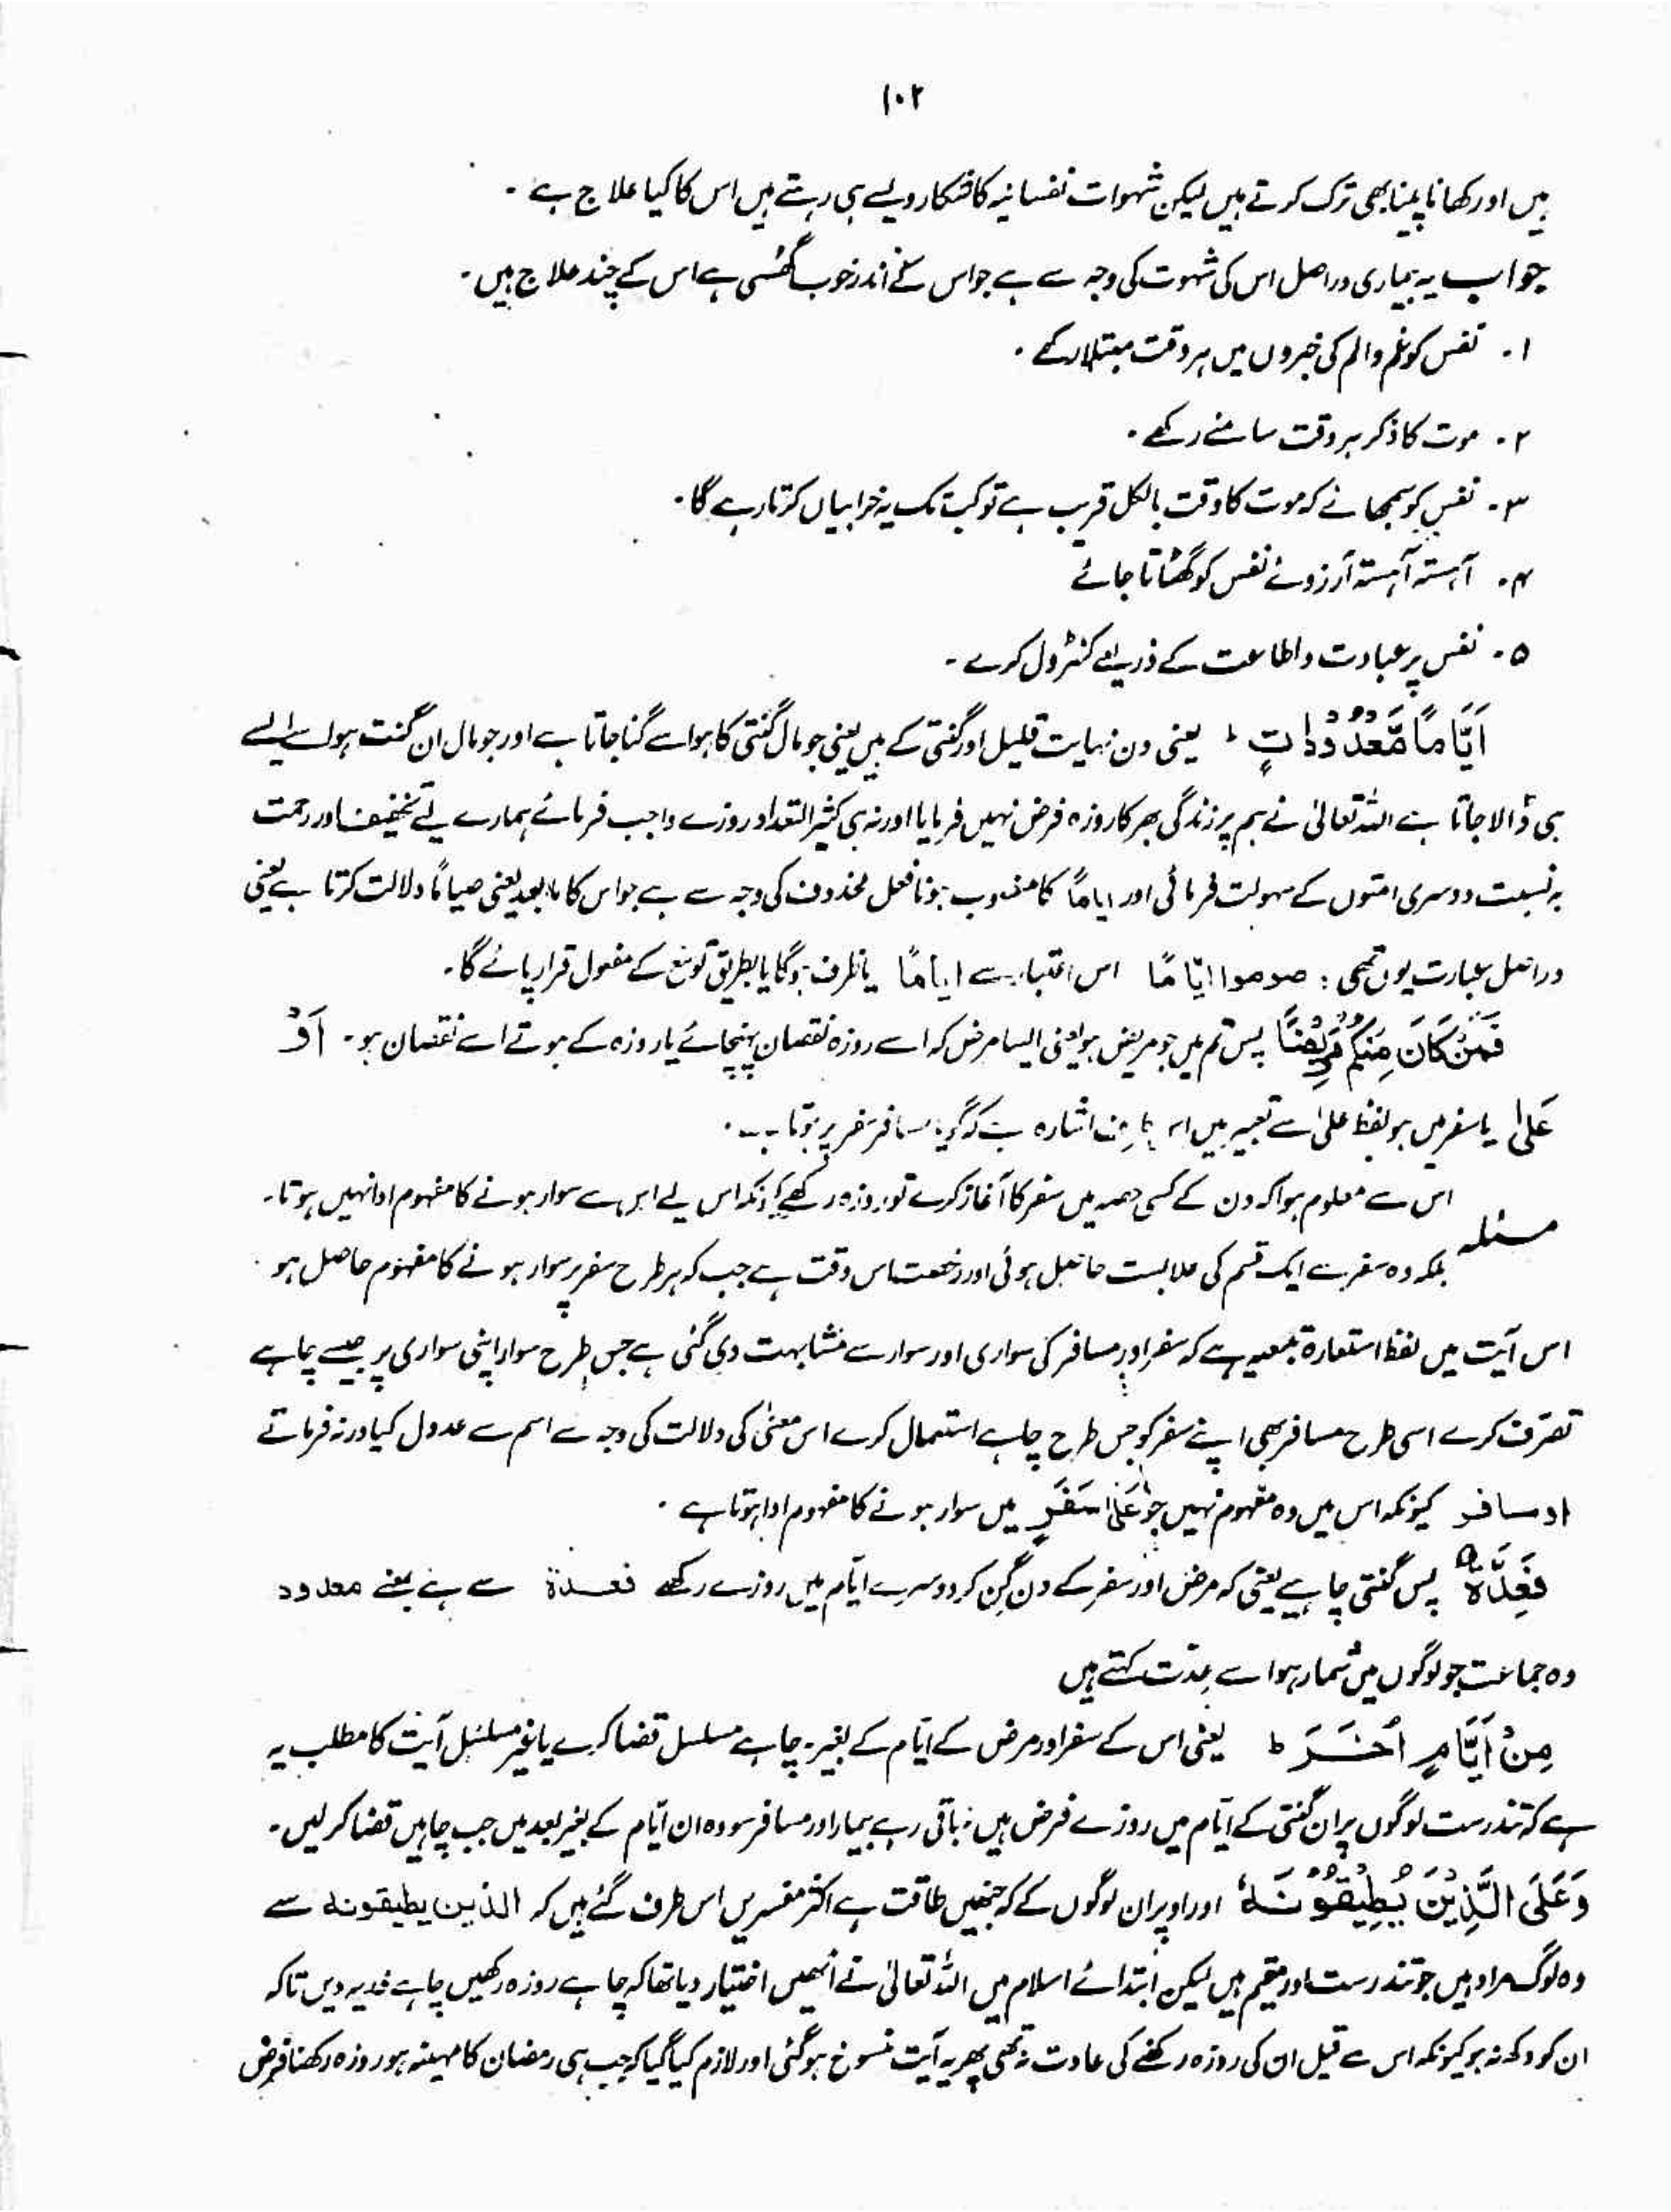 ۱۰۲
ہیں اور کھانا پینا بھی ترک کرتے ہیں لیکن شہوات نفسانیہ کا شکار ویسے ہی رہتے ہیں اس کا کیا علاج ہے ۔
جواب یہ بیماری دراصل اس کی شہوت کی وجہ سے ہے جو اس کے اندر خوب گھسی ہے اس کے چند علاج ہیں ۔
۱۔ نفس کو غم والم کی خبروں میں ہر وقت مبتلا رکھے ۔
۲۔ موت کا ذکر ہر وقت سامنے رکھے ۔
۳۔ نفس کو سمجھائے کہ موت کا وقت بالکل قریب ہے تو کب تک یہ خرابیاں کرتا رہے گا ۔
۴۔ آہستہ آہستہ آرزوئے نفس کو گھٹاتا جائے
۵۔ نفس پر عبادت واطاعت کے ذریعے کنٹرول کرے ۔
اَیَّامًا مَّعْدُوْدَاتٍ ط یعنی دن نہایت قلیل اور گنتی کے ہیں یعنی جو مال گنتی کا ہو اسے گنا جاتا ہے اور جو مال ان گنت ہو اسے ایسے
ہی ڈالا جاتا ہے اللہ تعالیٰ نے ہم پر زندگی بھر کا روزہ فرض نہیں فرمایا اور نہ ہی کثیر التعداد روزے واجب فرمائے ہمارے لیے تخفیف اور رحمت
بہ نسبت دوسری امتوں کے سہولت فرمائی اور ایاماً کا منصوب ہونا فعل محذوف کی وجہ سے ہے جو اس کا مابعد یعنی صیاماً دلالت کرتا ہے یعنی
دراصل عبارت یوں تھی : صوموا ایّامًا اس اعتبار سے ایامًا یا ظرف ہوگا یا بطریق توسّع کے مفعول قرار پائے گا ۔
فَمَنْ كَانَ مِنْكُمْ مَّرِیْضًا پس تم میں جو مریض ہو یعنی ایسا مرض کہ اسے روزہ نقصان پہنچائے یا روزہ کے ہوتے اسے نقصان ہو ۔ اَوْ
عَلٰی یا سفر میں ہو لفظ علیٰ سے تعبیر میں اس اشارہ ہے کہ گویا مسافر سفر پر ہوتا ہے ۔
مسئلہ اس سے معلوم ہوا کہ دن کے کسی حصہ میں سفر کا آغاز کرے تو روزہ رکھے کیونکہ اس لیے اس سے سوار ہونے کا مفہوم ادا نہیں ہوتا ۔
بلکہ وہ سفر سے ایک قسم کی ملابست حاصل ہوئی اور رخصت اس وقت ہے جب کہ ہر طرح سفر پر سوار ہونے کا مفہوم حاصل ہو ۔
اس آیت میں لفظ استعارۃ تبعیہ ہے کہ سفر اور مسافر کی سواری اور سوار سے مشابہت دی گئی ہے جس طرح سوار اپنی سواری پر جیسے چاہے
تصرّف کرے اسی طرح مسافر بھی اپنے سفر کو جس طرح چاہے استعمال کرے اس معنیٰ کی دلالت کی وجہ سے اسم سے عدول کیا ورنہ فرماتے
اد مسافر کیونکہ اس میں وہ مفہوم نہیں جو عَلٰی سَفَرٍ میں سوار ہونے کا مفہوم ادا ہوتا ہے ۔
فَعِدَّةٌ پس گنتی چاہیے یعنی کہ مرض اور سفر کے دن گن کر دوسرے ایّام میں روزے رکھے فعدۃ سے ہے بمعنے معدود
وہ جماعت جو لوگوں میں شمار ہو اسے عِدّت کہتے ہیں
مِنْ اَیَّامٍ اُخَرَ ط یعنی اس کے سفر اور مرض کے ایّام کے بغیر ۔ چاہے مسلسل قضا کرے یا غیر مسلسل آیت کا مطلب یہ
ہے کہ تندرست لوگوں پر ان گنتی کے ایّام میں روزے فرض ہیں ۔ باقی رہے بیمار اور مسافر سو وہ ان ایّام کے بغیر بعد میں جب چاہیں قضا کرلیں ۔
وَعَلَی الَّذِیْنَ یُطِیْقُوْنَهٗ اور اوپر ان لوگوں کے کہ جنھیں طاقت ہے اکثر مفسریں اس طرف گئے ہیں کہ الذین یطیقونہ سے
وہ لوگ مراد ہیں جو تندرست اور مقیم ہیں لیکن ابتدائے اسلام میں اللہ تعالیٰ نے انھیں اختیار دیا تھا کہ چاہے روزہ رکھیں چاہے فدیہ دیں تاکہ
ان کو دکھ نہ ہو کیونکہ اس سے قبل ان کی روزہ رکھنے کی عادت نہ تھی پھر یہ آیت منسوخ ہوگئی اور لازم کیا گیا کہ جب ہی رمضان کا مہینہ ہو روزہ رکھنا فرض